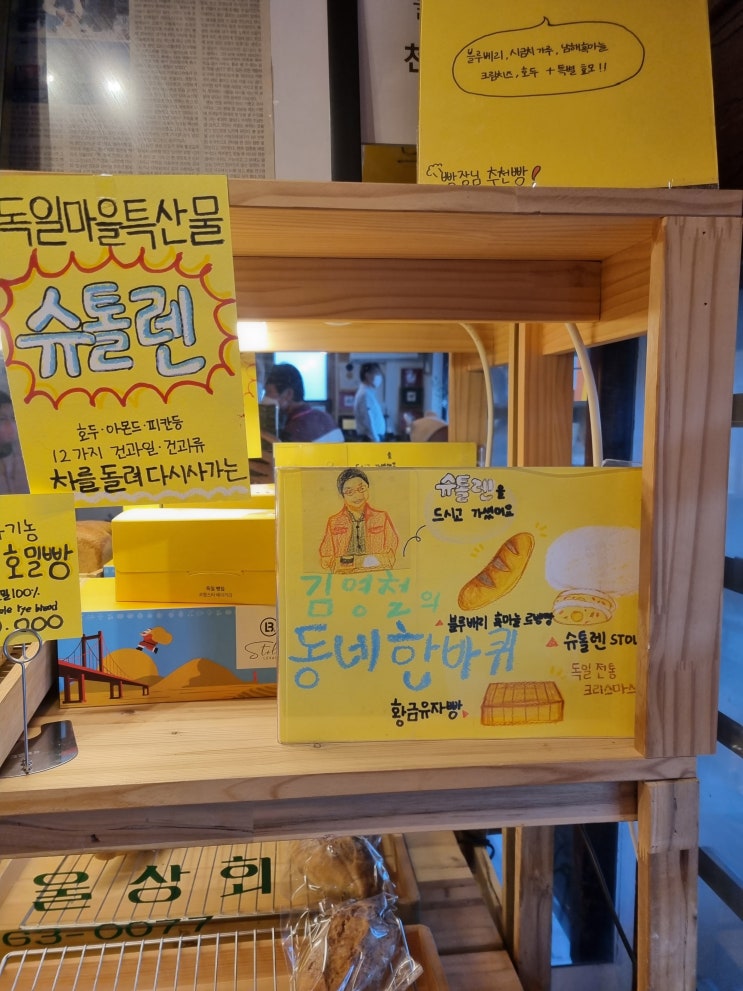 블루베리, 시금치 가루, 남해흑마늘
크림치즈, 호두 + 특별 효모 !!
빵장님 추천빵!
독일마을특산물
슈톨렌
호두·아몬드·피칸등
12가지 건과일·건과류
차를 돌려 다시사가는
기농
호밀빵
100%
rye bread
슈톨렌을
드시고 가셨어요
김영철의
동네한바퀴
블루베리 흑마늘
슈톨렌 STOL
독일 전통
크리스마스
황금유자빵
B
울상회
63-0077